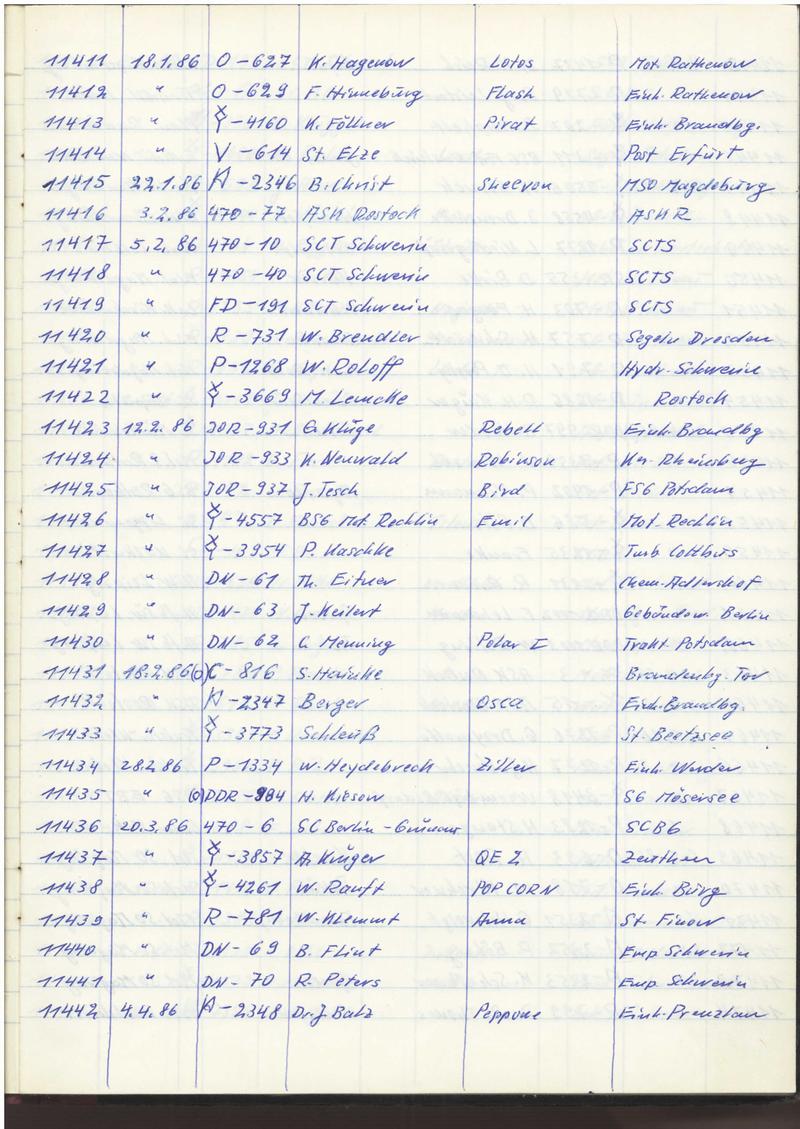 11411 18.1.86 O-627 K. Hagenow Lotos Mot. Rathenow
11412 " O-629 F. Hinneburg Flash Einh. Rathenow
11413 " Y-4160 K. Föllner Pirat Einh. Brandbg.
11414 " V-614 St. Elze Post Erfurt
11415 22.1.86 H-2346 B. Christ MSD Magdeburg
11416 3.2.86 470-77 ASK Rostock ASK R
11417 5.2.86 470-10 SCT Schwerin SCTS
11418 " 470-40 SCT Schwerin SCTS
11419 " FD-191 SCT Schwerin SCTS
11420 " R-731 W. Brendler Segeln Dresden
11421 " P-1268 W. Roloff Hydr. Schwerin
11422 " Y-3669 M. Lemcke Rostock
11423 12.2.86 JOR-931 G. Kluge Rebell Einh. Brandbg
11424 " JOR-933 K. Neuwald Robinson Kw. Rheinsberg
11425 " JOR-937 J. Tesch Bird FSG Potsdam
11426 " Y-4557 BSG Mot. Rechlin Emil Mot. Rechlin
11427 " Y-3954 P. Kaschke Turb Cottbus
11428 " DN-61 Th. Eitner Chem. Adlershof
11429 " DN-63 J. Keilert Gebäudew. Berlin
11430 " DN-62 C. Menning Polar I Trakt. Potsdam
11431 18.2.86 (O) C-816 S. Hainke Brandenbg. Tor
11432 " H-2347 Berger Osca Einh. Brandbg.
11433 " Y-3773 Schleuß St. Beetzsee
11434 28.2.86 P-1334 W. Heydebreck Ziller Einh. Werder
11435 " (O) DDR-984 H. Kiesow SG Mösersee
11436 20.3.86 470-6 SC Berlin-Grünau SCBG
11437 " Y-3857 A. Krüger QE 2 Zeuthen
11438 " Y-4261 W. Rauft POPCORN Einh. Burg
11439 " R-781 W. Klemmt Anna St. Finow
11440 " DN-69 B. Flint Emp Schwerin
11441 " DN-70 R. Peters Emp. Schwerin
11442 4.4.86 H-2348 Dr. J. Batz Peppone Einh. Prenzlau